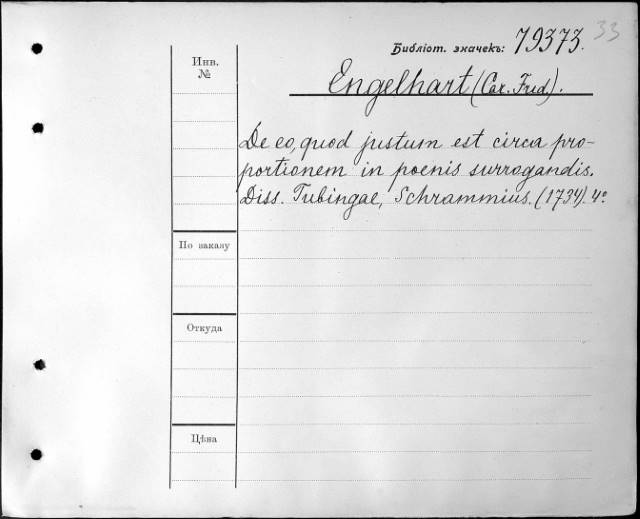 33
Библіот. значекъ: 79373.
Инв.
№
Engelhart (Car. Frid.).
De eo, quod justum est circa pro-
portionem in poenis surrogandis.
Diss. Tubingae, Schrammius. (1734). 4º
По заказу
Откуда
Цѣна